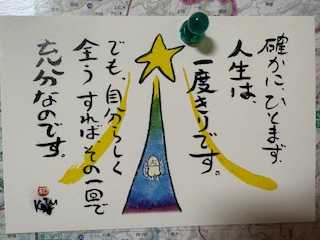 確かに、ひとまず、
人生は、
一度きりです。
でも、自分らしく
全う すれば、その一回で
充分なのです。